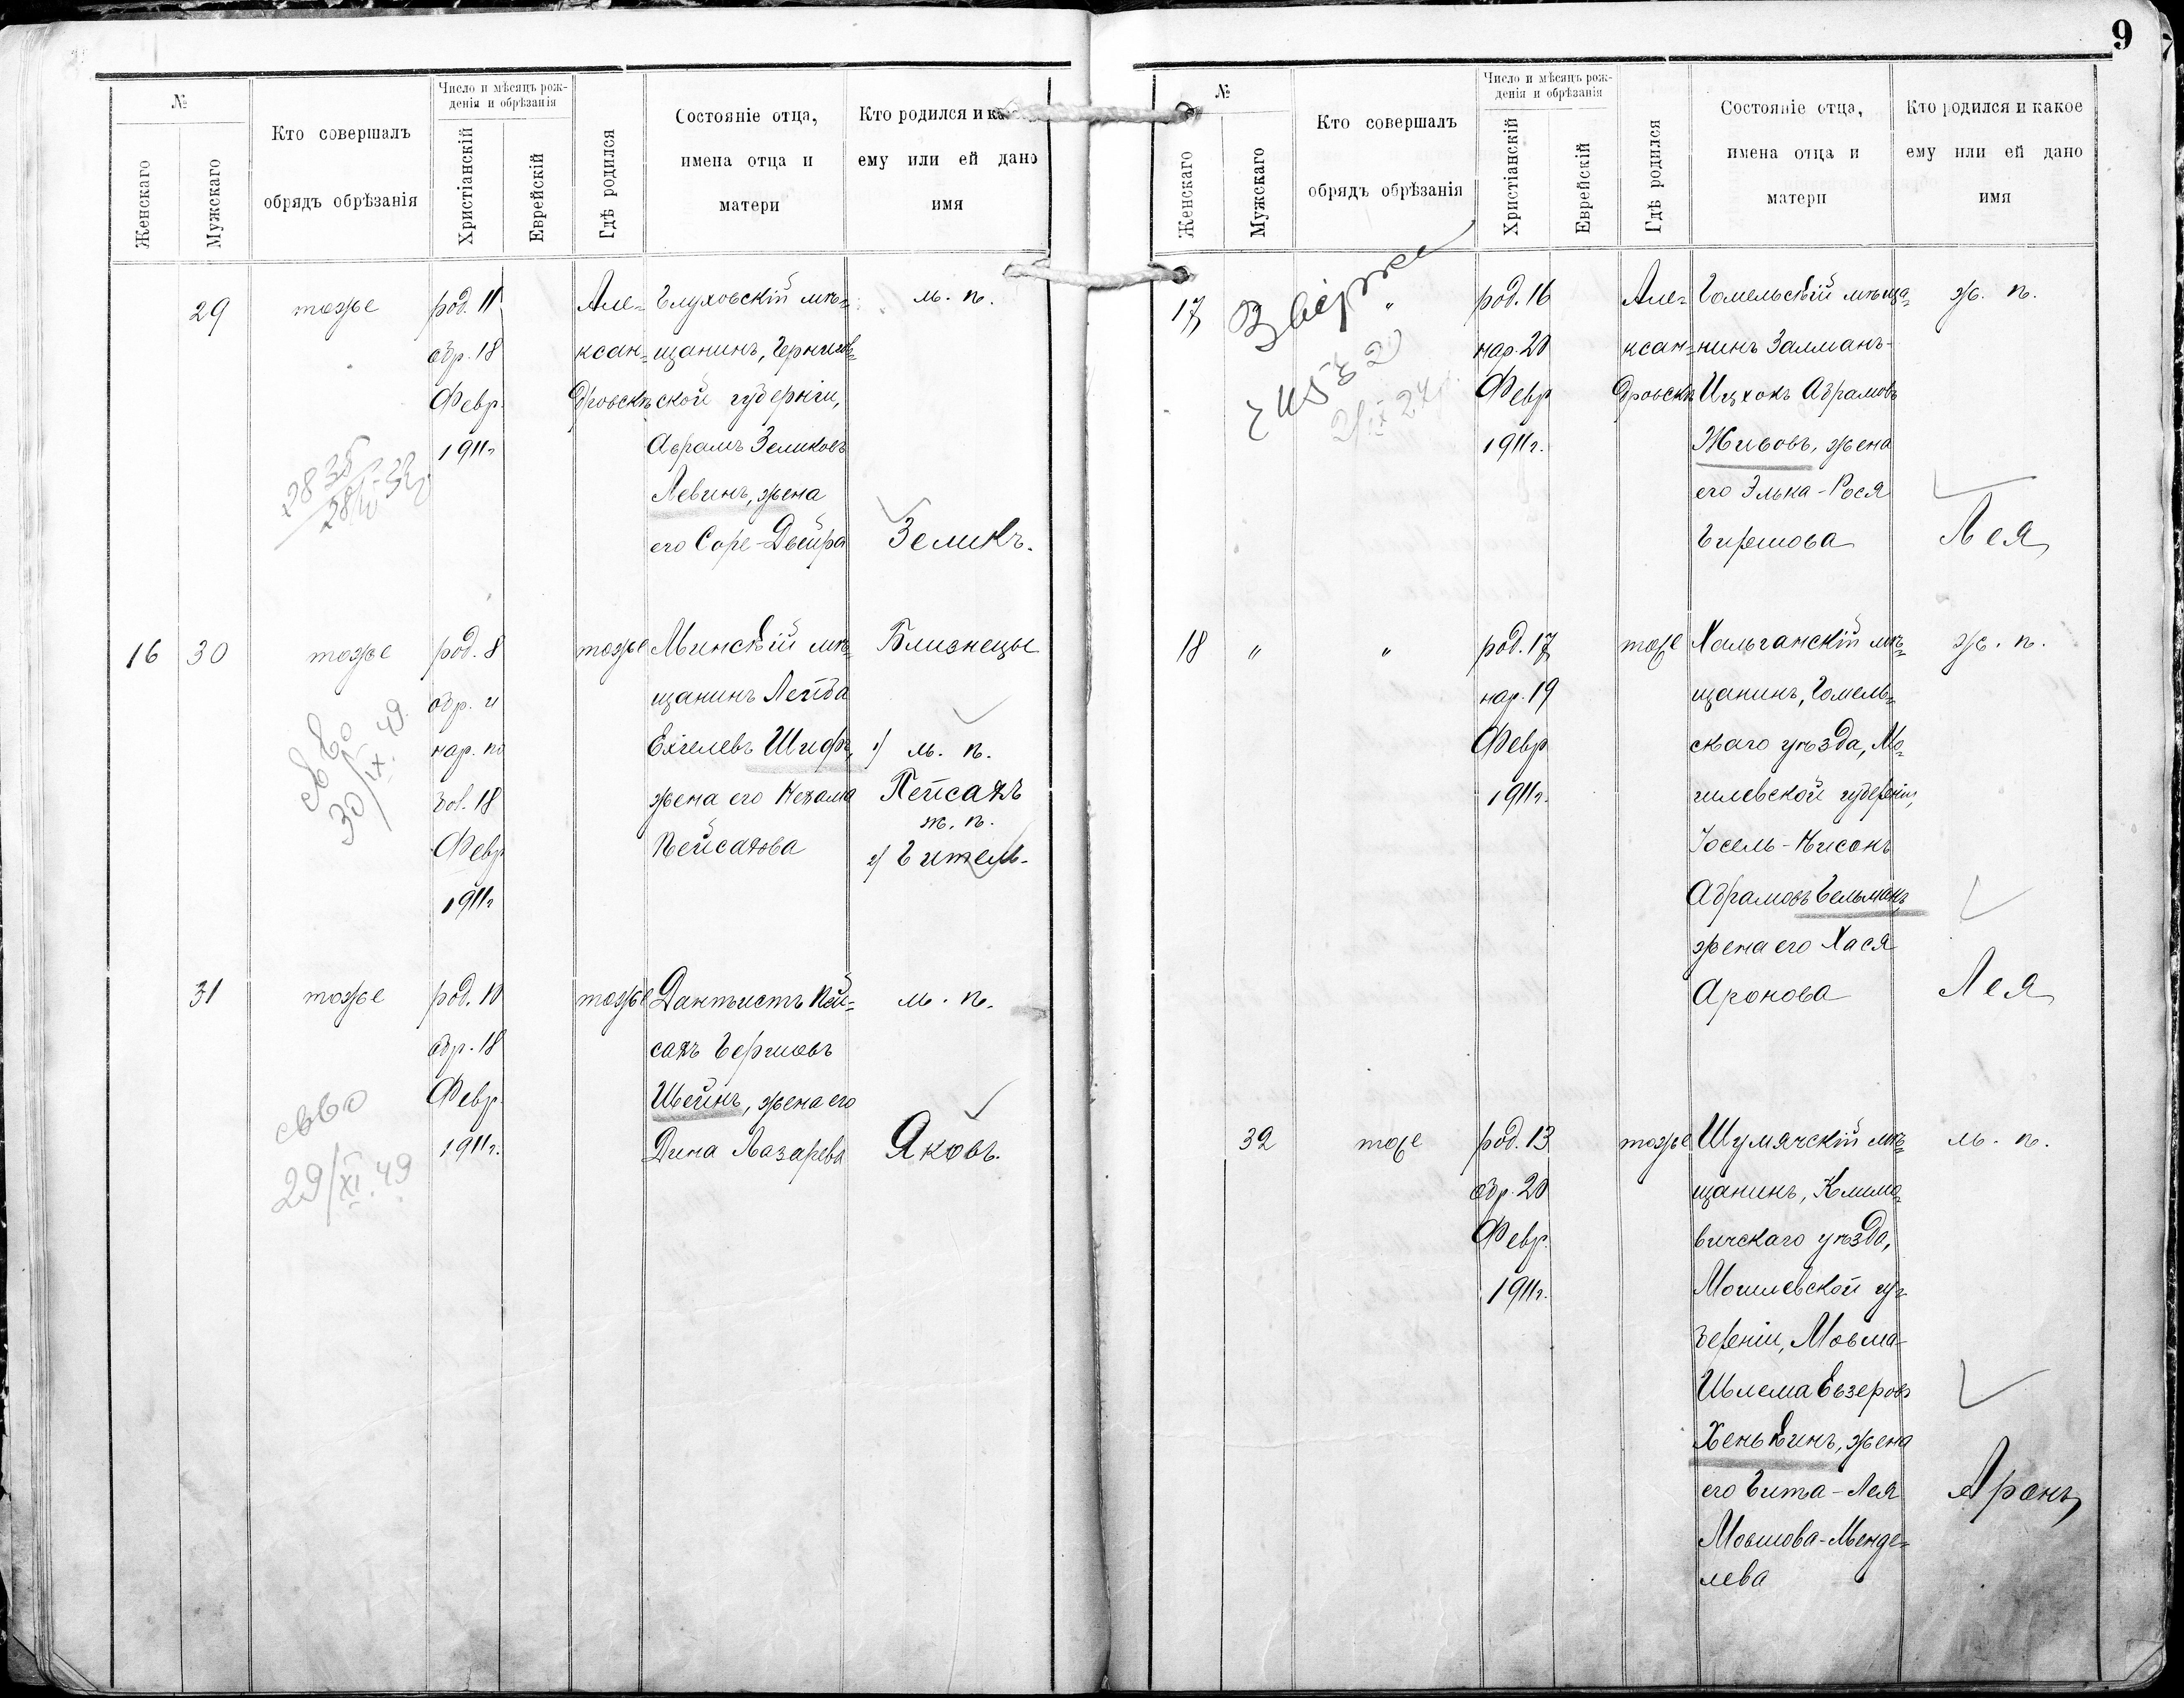 9
№
Женскаго
Мужскаго
Кто совершалъ
обрядъ обрѣзанія
Число и мѣсяцъ рож-
денія и обрѣзанія
Христіанскій
Еврейскій
Гдѣ родился
Состояніе отца,
имена отца и
матери
Кто родился и как
ему или ей дано
имя
29
тоже
род. 11
обр. 18
Февр.
1911г
Але-
ксан-
дровскѣ
Глуховскій мѣ-
щанинъ, Чернигов-
ской губерніи,
Абрамъ Зеликовъ
Левинъ, жена
его Соре-Двейра
м. п.
Зеликъ.
16
30
тоже
род. 8
обр. и
нар. по
зов. 18
Февр
1911г
тоже
Минскій мѣ-
щанинъ Лейба
Ехіелевъ Шифъ,
жена его Нехама
Пейсахова
Близнецы
1) м. п.
Пейсахъ
ж. п.
2) Гитель.
св во
30/IX. 49.
31
тоже
род. 10
обр. 18
Февр.
1911г.
тоже
Дантистъ Пей-
сахъ Берковъ
Шейнъ, жена его
Дина Лазарева
м. п.
Яковъ.
свво
29/XI. 49
№
Женскаго
Мужскаго
Кто совершалъ
обрядъ обрѣзанія
Число и мѣсяцъ рож-
денія и обрѣзанія
Христіанскій
Еврейскій
Гдѣ родился
Состояніе отца,
имена отца и
матери
Кто родился и какое
ему или ей дано
имя
17
"
род. 16
нар. 20
Февр
1911г.
Але-
ксан-
дровскѣ
Гомельскій мѣща-
нинъ Залманъ-
Ицхокъ Абрамовъ
Живовъ, жена
его Элька-Рося
Гиршова
ж. п.
Лея
18
"
"
род. 17
нар. 19
Февр
1911г.
тоже
Хальчанскій мѣ-
щанинъ, Гомель-
скаго уѣзда, Мо-
гилевской губерніи,
Іосель-Нисонъ
Абрамовъ Гельманъ,
жена его Хася
Аронова
ж. п.
Лея
32
тоже
род. 13
обр. 20
Февр.
1911г.
тоже
Шумячскій мѣ-
щанинъ, Климо-
вичскаго уѣзда,
Могилевской гу-
берніи, Мовша-
Шлема Евзеровъ
Хенькинъ, жена
его Гита-Лея
Мовшова-Менде-
лева
м. п.
Аронъ